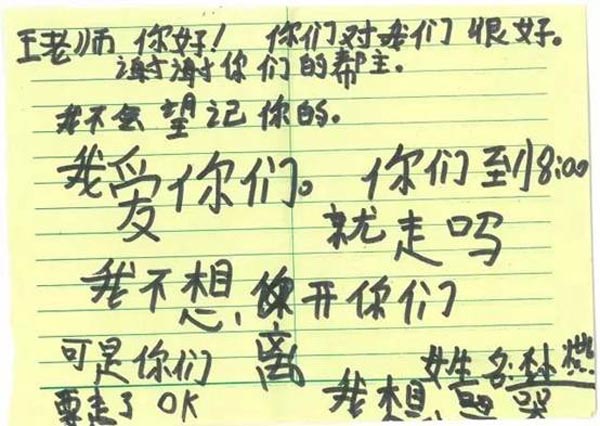 王老师 你好! 你们对我们恨好。
谢谢你们的帮主。
我不会望记你的。
我爱你们。 你们到18:00
就走吗
我不想离开你们
可是你们
要走了 OK
姓名:林
我想